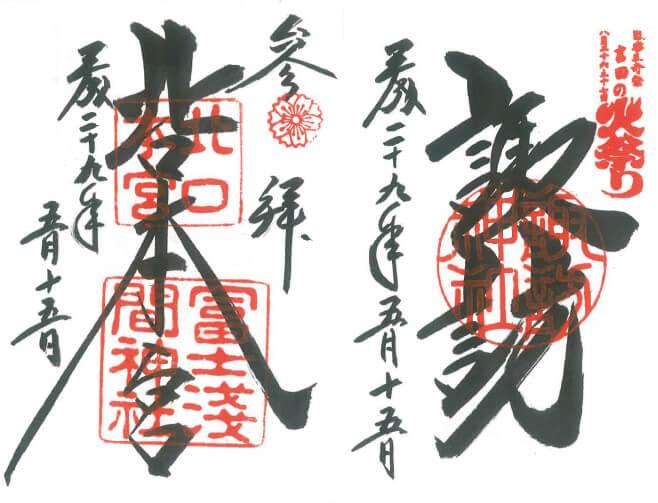 参拝
北口本宮
北口
本宮
冨士淺
間神社
二十九年
五月十五日
日本三奇祭
吉田の
火祭り
八月二十六二十七日
諏訪
諏訪
神社
二十九年五月十五日